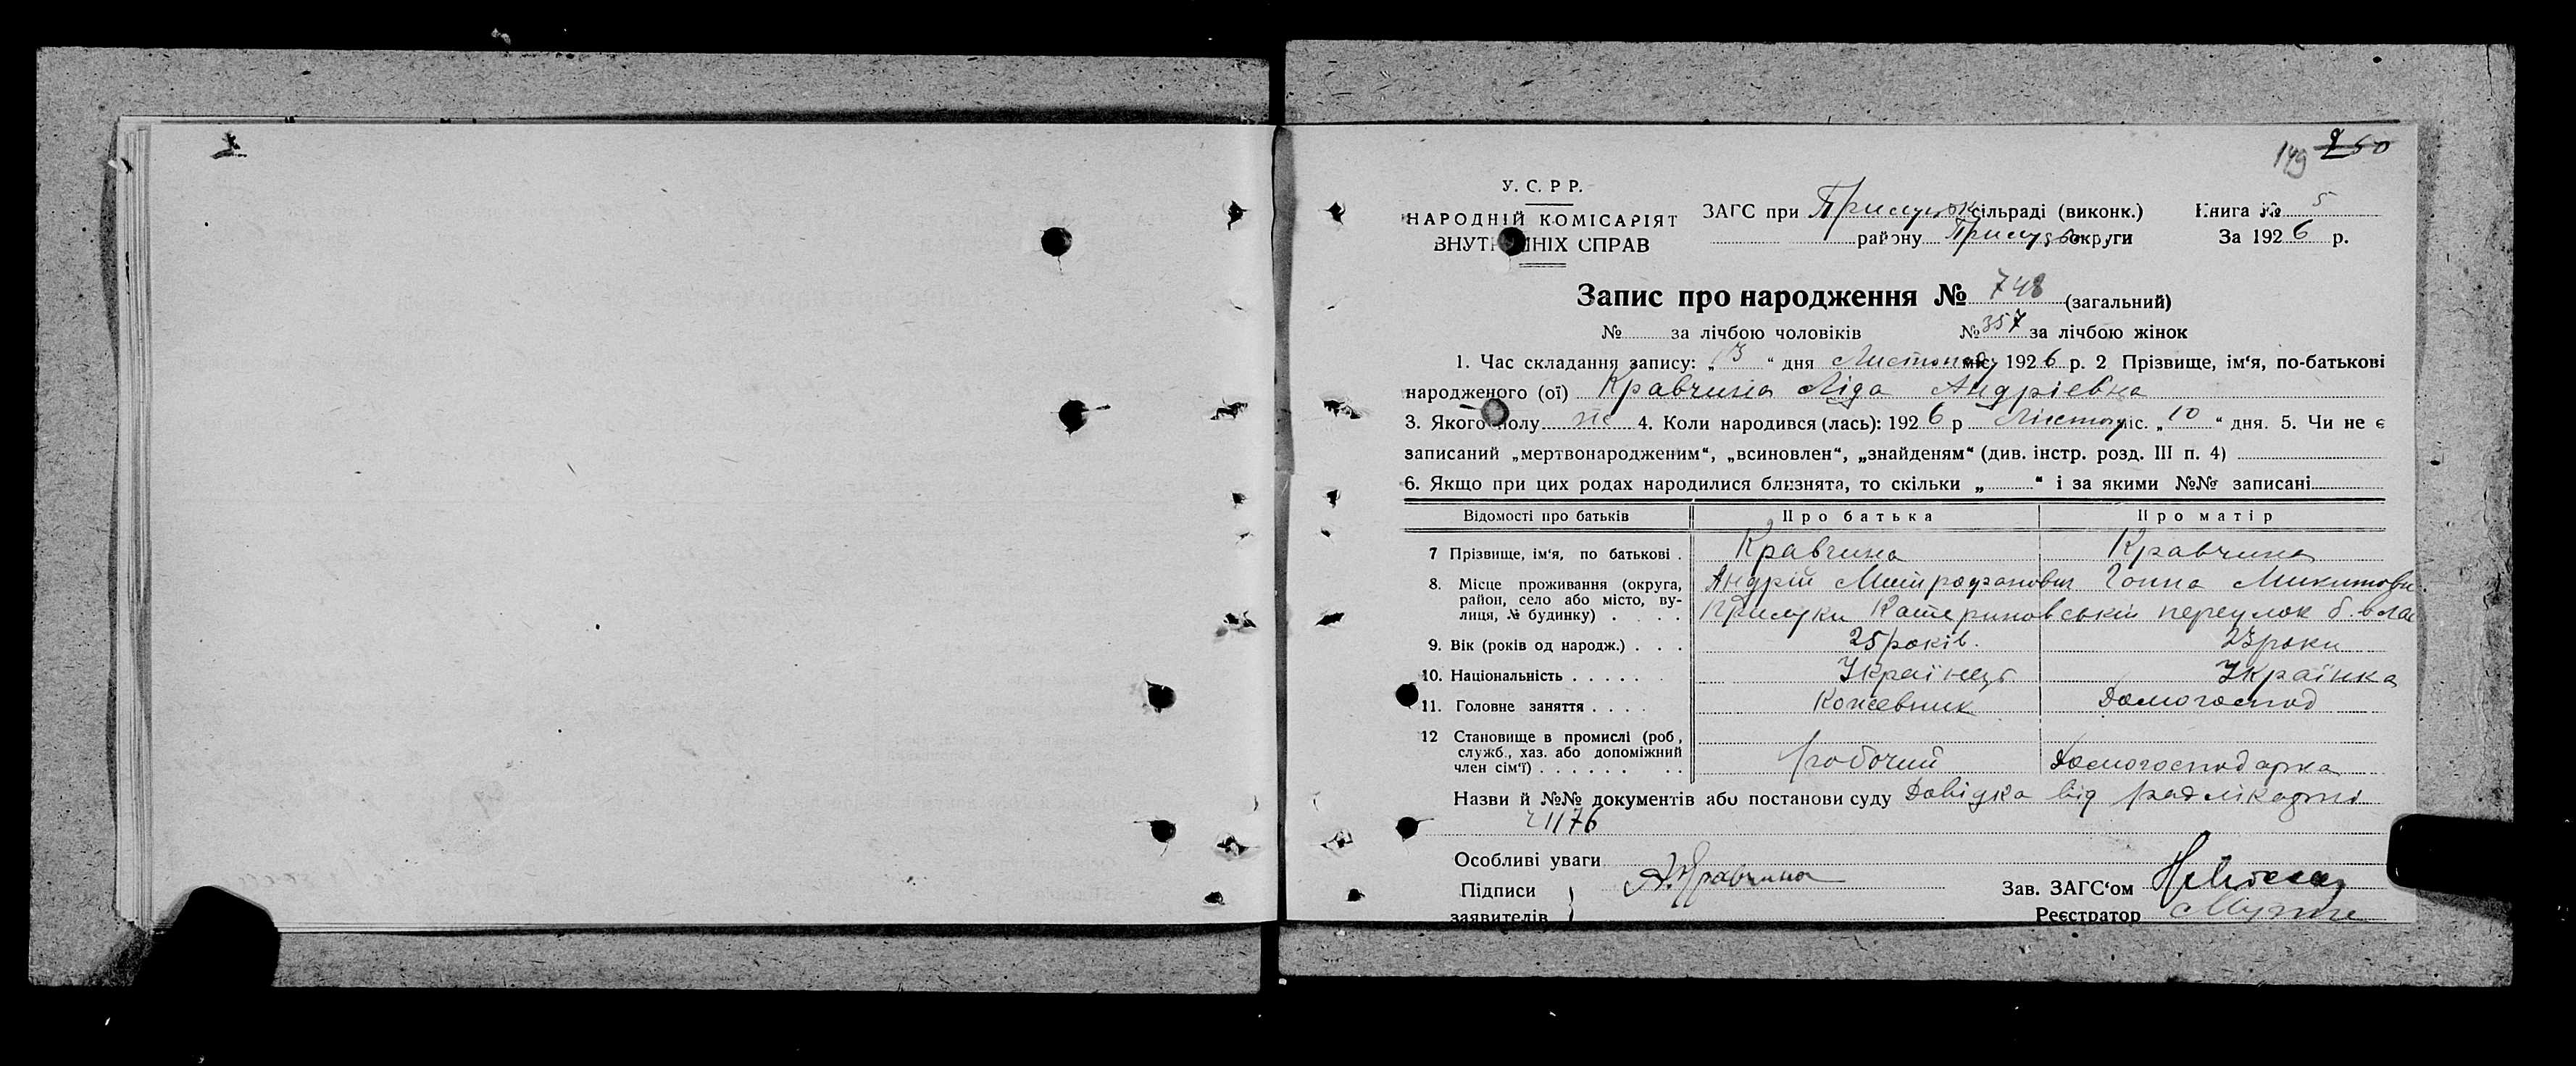 149 250
У. С. Р Р.
НАРОДНІЙ КОМІСАРІЯТ
ВНУТРІШНІХ СПРАВ
ЗАГС при Прилуцьк сільраді (виконк.) Книга № 5
району Прилуцьк округи За 1926 р.
Запис про народження № 748 (загальний)
№ за лічбою чоловіків № 357 за лічбою жінок
1. Час складання запису: „13“ дня Листопад міс. 1926 р. 2 Прізвище, ім‘я, по-батькові
народженого (ої) Кравчина Ліда Андріевна
3. Якого полу ж 4. Коли народився (лась): 1926 р Листоп міс. „10“ дня. 5. Чи не є
записаний „мертвонародженим“, „всиновлен“, „знайденям“ (див. інстр. розд. III п. 4)
6. Якщо при цих родах народилися близнята, то скільки „ “ і за якими №№ записані
Відомості про батьків Про батька Про матір
7 Прізвище, ім‘я, по батькові . Кравчина Кравчина
8. Місце проживання (округа, район, село або місто, ву- лиця, № будинку) . . . . Андрій Митрофанович Ганна Микитовн
Прилуки Катериновський переулок б. влас
9. Вік (років од народж.) . . . 25 років. 23 роки
10. Національність . . . . . . Українець Українка
11. Головне заняття . . . . Кожевник Домогоспод
12 Становище в промислі (роб, служб., хаз. або допоміжний член сім‘ї) . . . . . . . . робочий Домогосподарка
Назви й №№ документів або постанови суду Довідка від
1176
Особливі уваги
Підписи А. Кравчина Зав. ЗАГС‘ом
заявителів Реєстратор